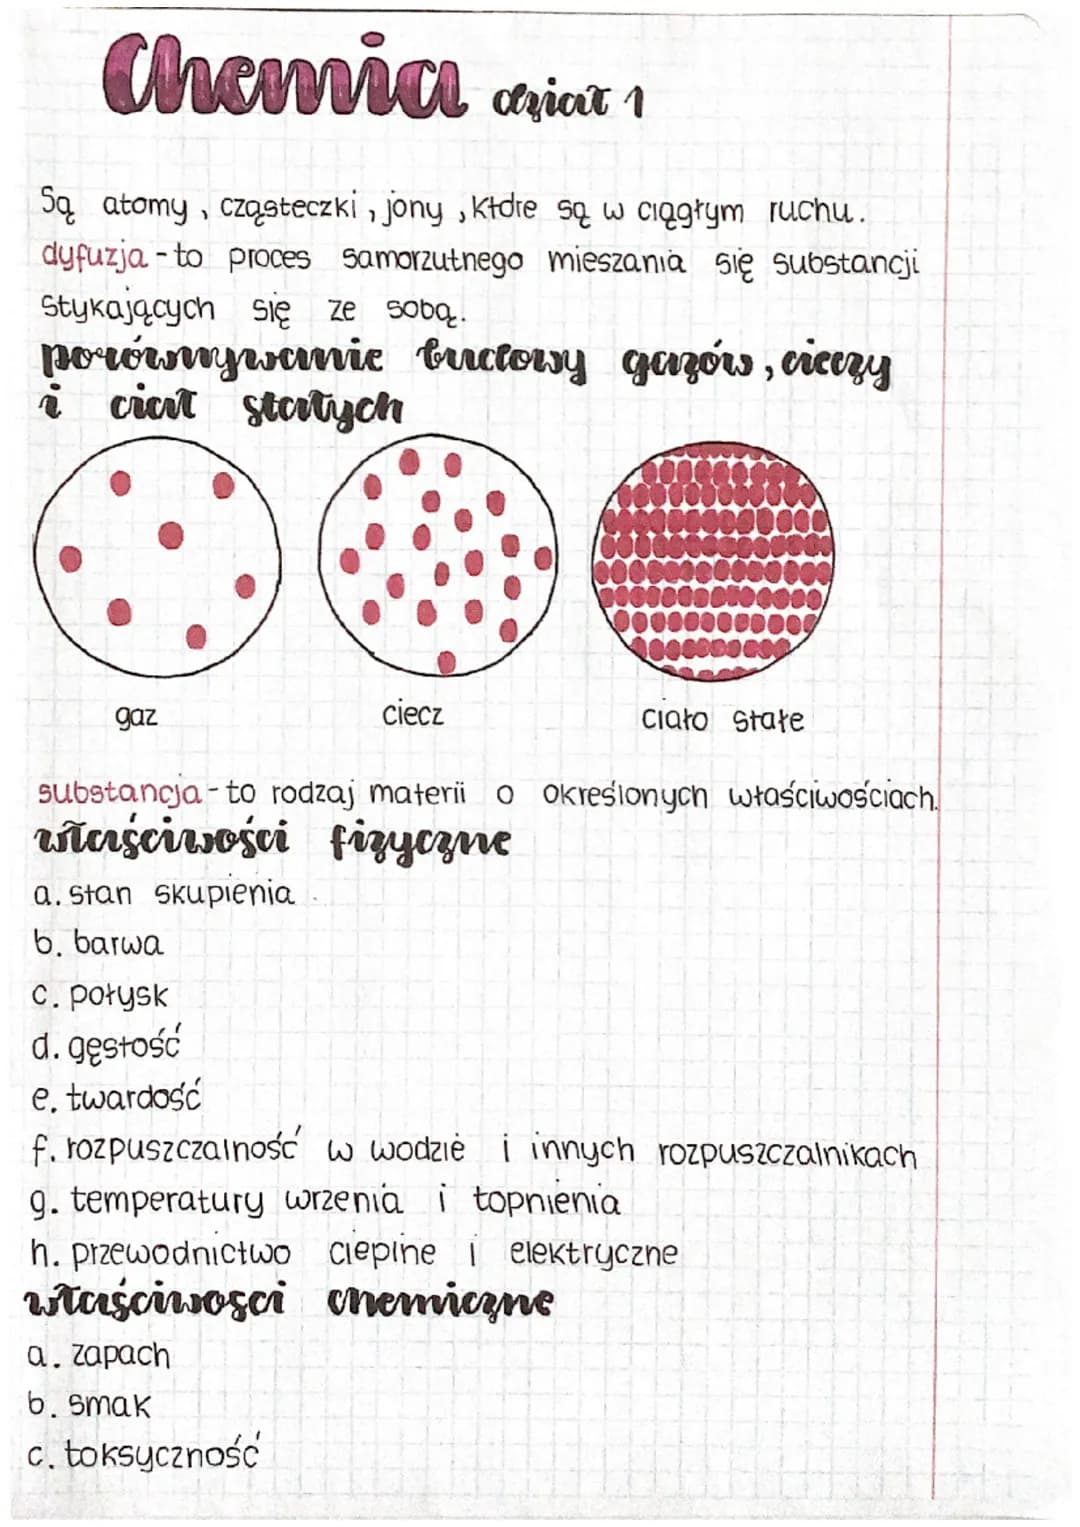 Chemia dział 1
Są atomy, cząsteczki, jony, które są w ciągłym ruchu.
dyfuzja - to proces samorzutnego mieszania się substancji
stykających się ze sobą.
porównywanie budowy gazów, cieczy
i ciał stałych
gaz ciecz ciało stałe
substancja - to rodzaj materii o określonych właściwościach.
właściwości fizyczne
a. stan skupienia
b. barwa
c. połysk
d. gęstość
e. twardość
f. rozpuszczalność w wodzie i innych rozpuszczalnikach
g. temperatury wrzenia i topnienia
h. przewodnictwo cieplne i elektryczne
właściwości chemiczne
a. zapach
b. smak
c. toksyczność